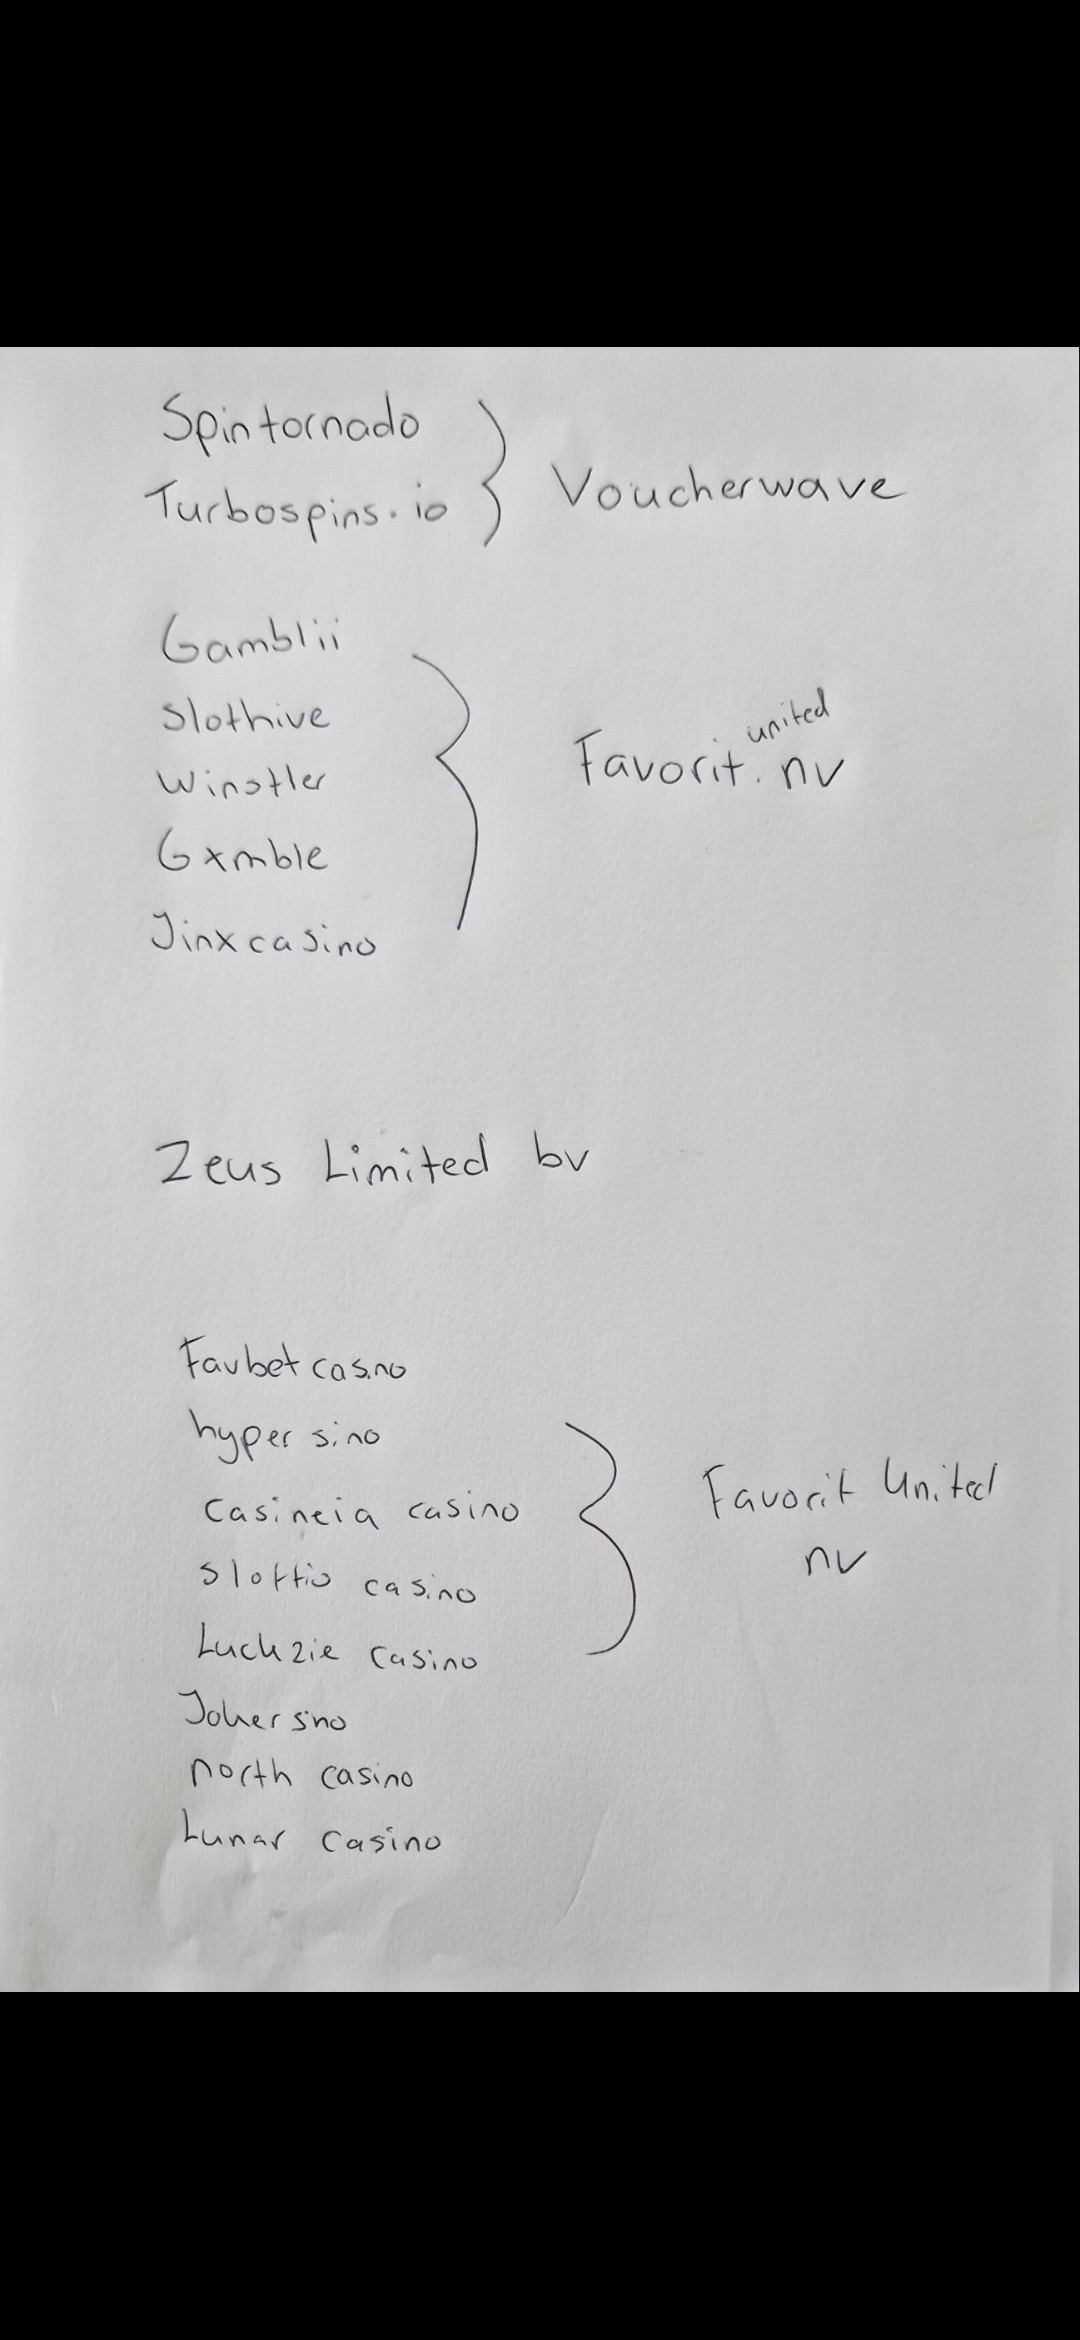 Spintornado
Turbospins.io
Voucherwave
Gamblii
Slothive
Winstler
Gxmble
Jinxcasino
united
Favorit. nv
Zeus Limited bv
Favbet casino
hyper sino
Casineia casino
Slottio casino
Luckzie casino
Joker sino
north casino
Lunar casino
Favorit United
nv